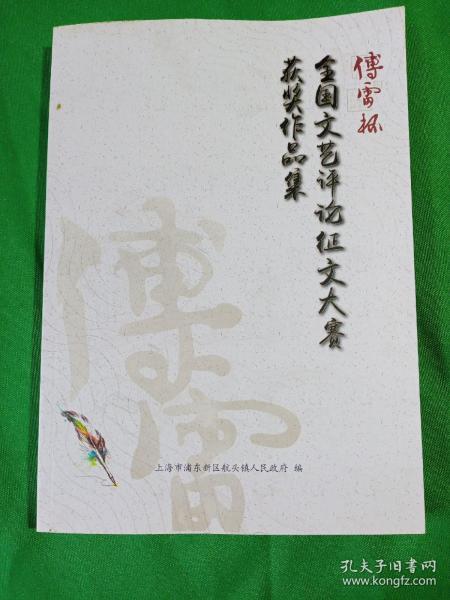 傅雷杯
全国文艺评论征文大赛
获奖作品集
傅雷
上海市浦东新区航头镇人民政府 编
孔夫子旧书网
www.kongfz.com